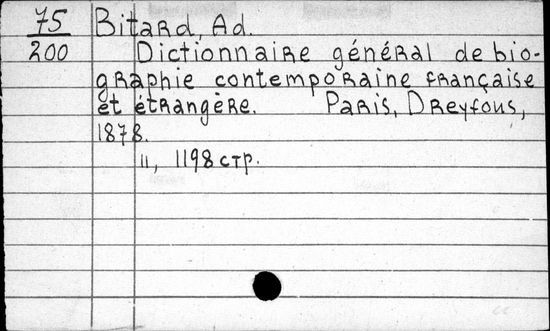 75 Bitard, Ad.
200 Dictionnaire général de bio-
graphie contemporaine française
et étrangère. Paris, Dreyfous,
1878.
II, 1198 стр.